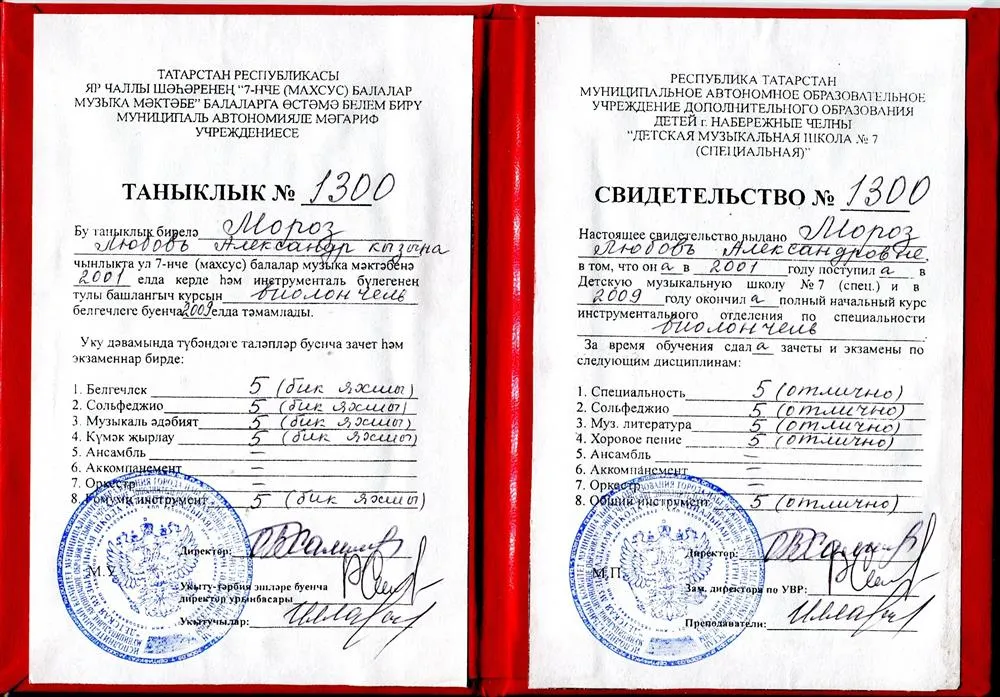 ТАТАРСТАН РЕСПУБЛИКАСЫ
ЯР ЧАЛЛЫ ШӘҺӘРЕНЕҢ "7-НЧЕ (МАХСУС) БАЛАЛАР
МУЗЫКА МӘКТӘБЕ" БАЛАЛАРГА ӨСТӘМӘ БЕЛЕМ БИРҮ
МУНИЦИПАЛЬ АВТОНОМИЯЛЕ МӘГАРИФ
УЧРЕЖДЕНИЕСЕ
ТАНЫКЛЫК № 1300
Бу таныклык бирелә Мороз
Любовь Александр кызына
чынлыкта ул 7-нче (махсус) балалар музыка мәктәбенә
2001 елда керде һәм инструменталь бүлегенең
тулы башлангыч курсын виолончель
белгечлеге буенча 2009 елда тәмамлады.
Уку дәвамында түбәндәге таләпләр буенча зачет һәм
экзаменнар бирде:
1. Белгечлек 5 (бик яхшы)
2. Сольфеджио 5 (бик яхшы)
3. Музыкаль әдәбият 5 (бик яхшы)
4. Күмәк җырлау 5 (бик яхшы)
5. Ансамбль –
6. Аккомпанемент –
7. Оркестр –
8. Гомуми инструмент 5 (бик яхшы)
Директор:
М.У.
Укыту-тәрбия эшләре буенча
директор урынбасары
Укытучылар:
РЕСПУБЛИКА ТАТАРСТАН
МУНИЦИПАЛЬНОЕ АВТОНОМНОЕ ОБРАЗОВАТЕЛЬНОЕ
УЧРЕЖДЕНИЕ ДОПОЛНИТЕЛЬНОГО ОБРАЗОВАНИЯ
ДЕТЕЙ г. НАБЕРЕЖНЫЕ ЧЕЛНЫ
"ДЕТСКАЯ МУЗЫКАЛЬНАЯ ШКОЛА № 7
(СПЕЦИАЛЬНАЯ)"
СВИДЕТЕЛЬСТВО № 1300
Настоящее свидетельство выдано Мороз
Любовь Александровне,
в том, что он а в 2001 году поступил а в
Детскую музыкальную школу №7 (спец.) и в
2009 году окончил а полный начальный курс
инструментального отделения по специальности
виолончель
За время обучения сдал а зачеты и экзамены по
следующим дисциплинам:
1. Специальность 5 (отлично)
2. Сольфеджио 5 (отлично)
3. Муз. литература 5 (отлично)
4. Хоровое пение 5 (отлично)
5. Ансамбль –
6. Аккомпанемент –
7. Оркестр –
8. Общий инструмент 5 (отлично)
Директор:
М.П.
Зам. директора по УВР:
Преподаватели: